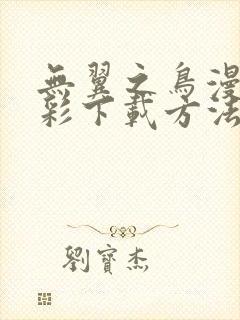 無翼之鳥漫
彩下載方法
劉寶杰